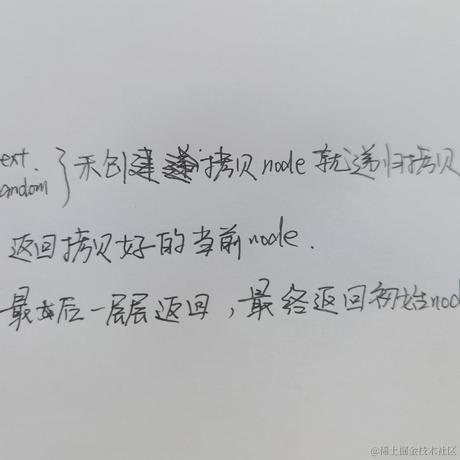 ext.
andom } 未创建拷贝node就递归拷贝
返回拷贝好的当前node.
最后一层层返回，最终返回初始nod
@稀土掘金技术社区